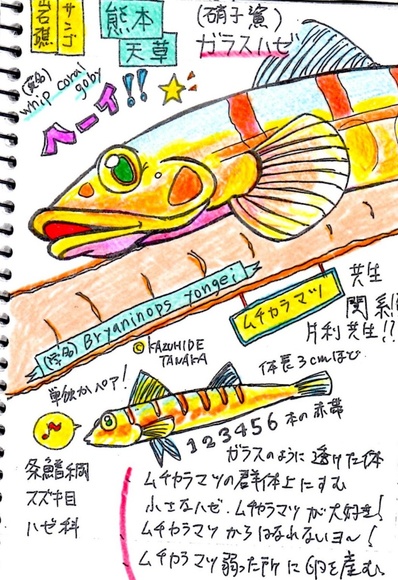 岩礁
サンゴ
熊本
天草
(硝子鯊)
ガラスハゼ
(英名)
whip coral
goby
ヘーイ!!
(学名) Bryaninops yongei
ムチカラマツ
共生
関係!
片利共生!!
© KAZUHIDE
TANAKA
体長3cmほど
単独かペア!
123456本の赤帯
ガラスのように透けた体
条鰭綱
スズキ目
ハゼ科
ムチカラマツの群体上にすむ
小さなハゼ.ムチカラマツが大好き!
ムチカラマツからはなれないヨ~!
ムチカラマツ弱った所に卵を産む